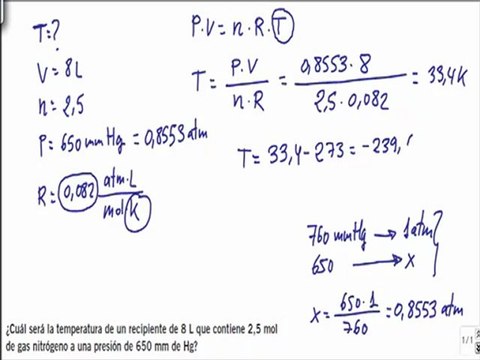 T=?
V=8L
n=2,5
P=650 mmHg=0,8553 atm
R=0,082 atm·L/mol·K
P·V=n·R·T
T=P·V/n·R=0,8553·8/2,5·0,082=33,4K
T=33,4-273=-239,
760 mmHg → 1 atm
650 → X
X=650·1/760=0,8553 atm
¿Cuál será la temperatura de un recipiente de 8 L que contiene 2,5 mol
de gas nitrógeno a una presión de 650 mm de Hg?
1/1